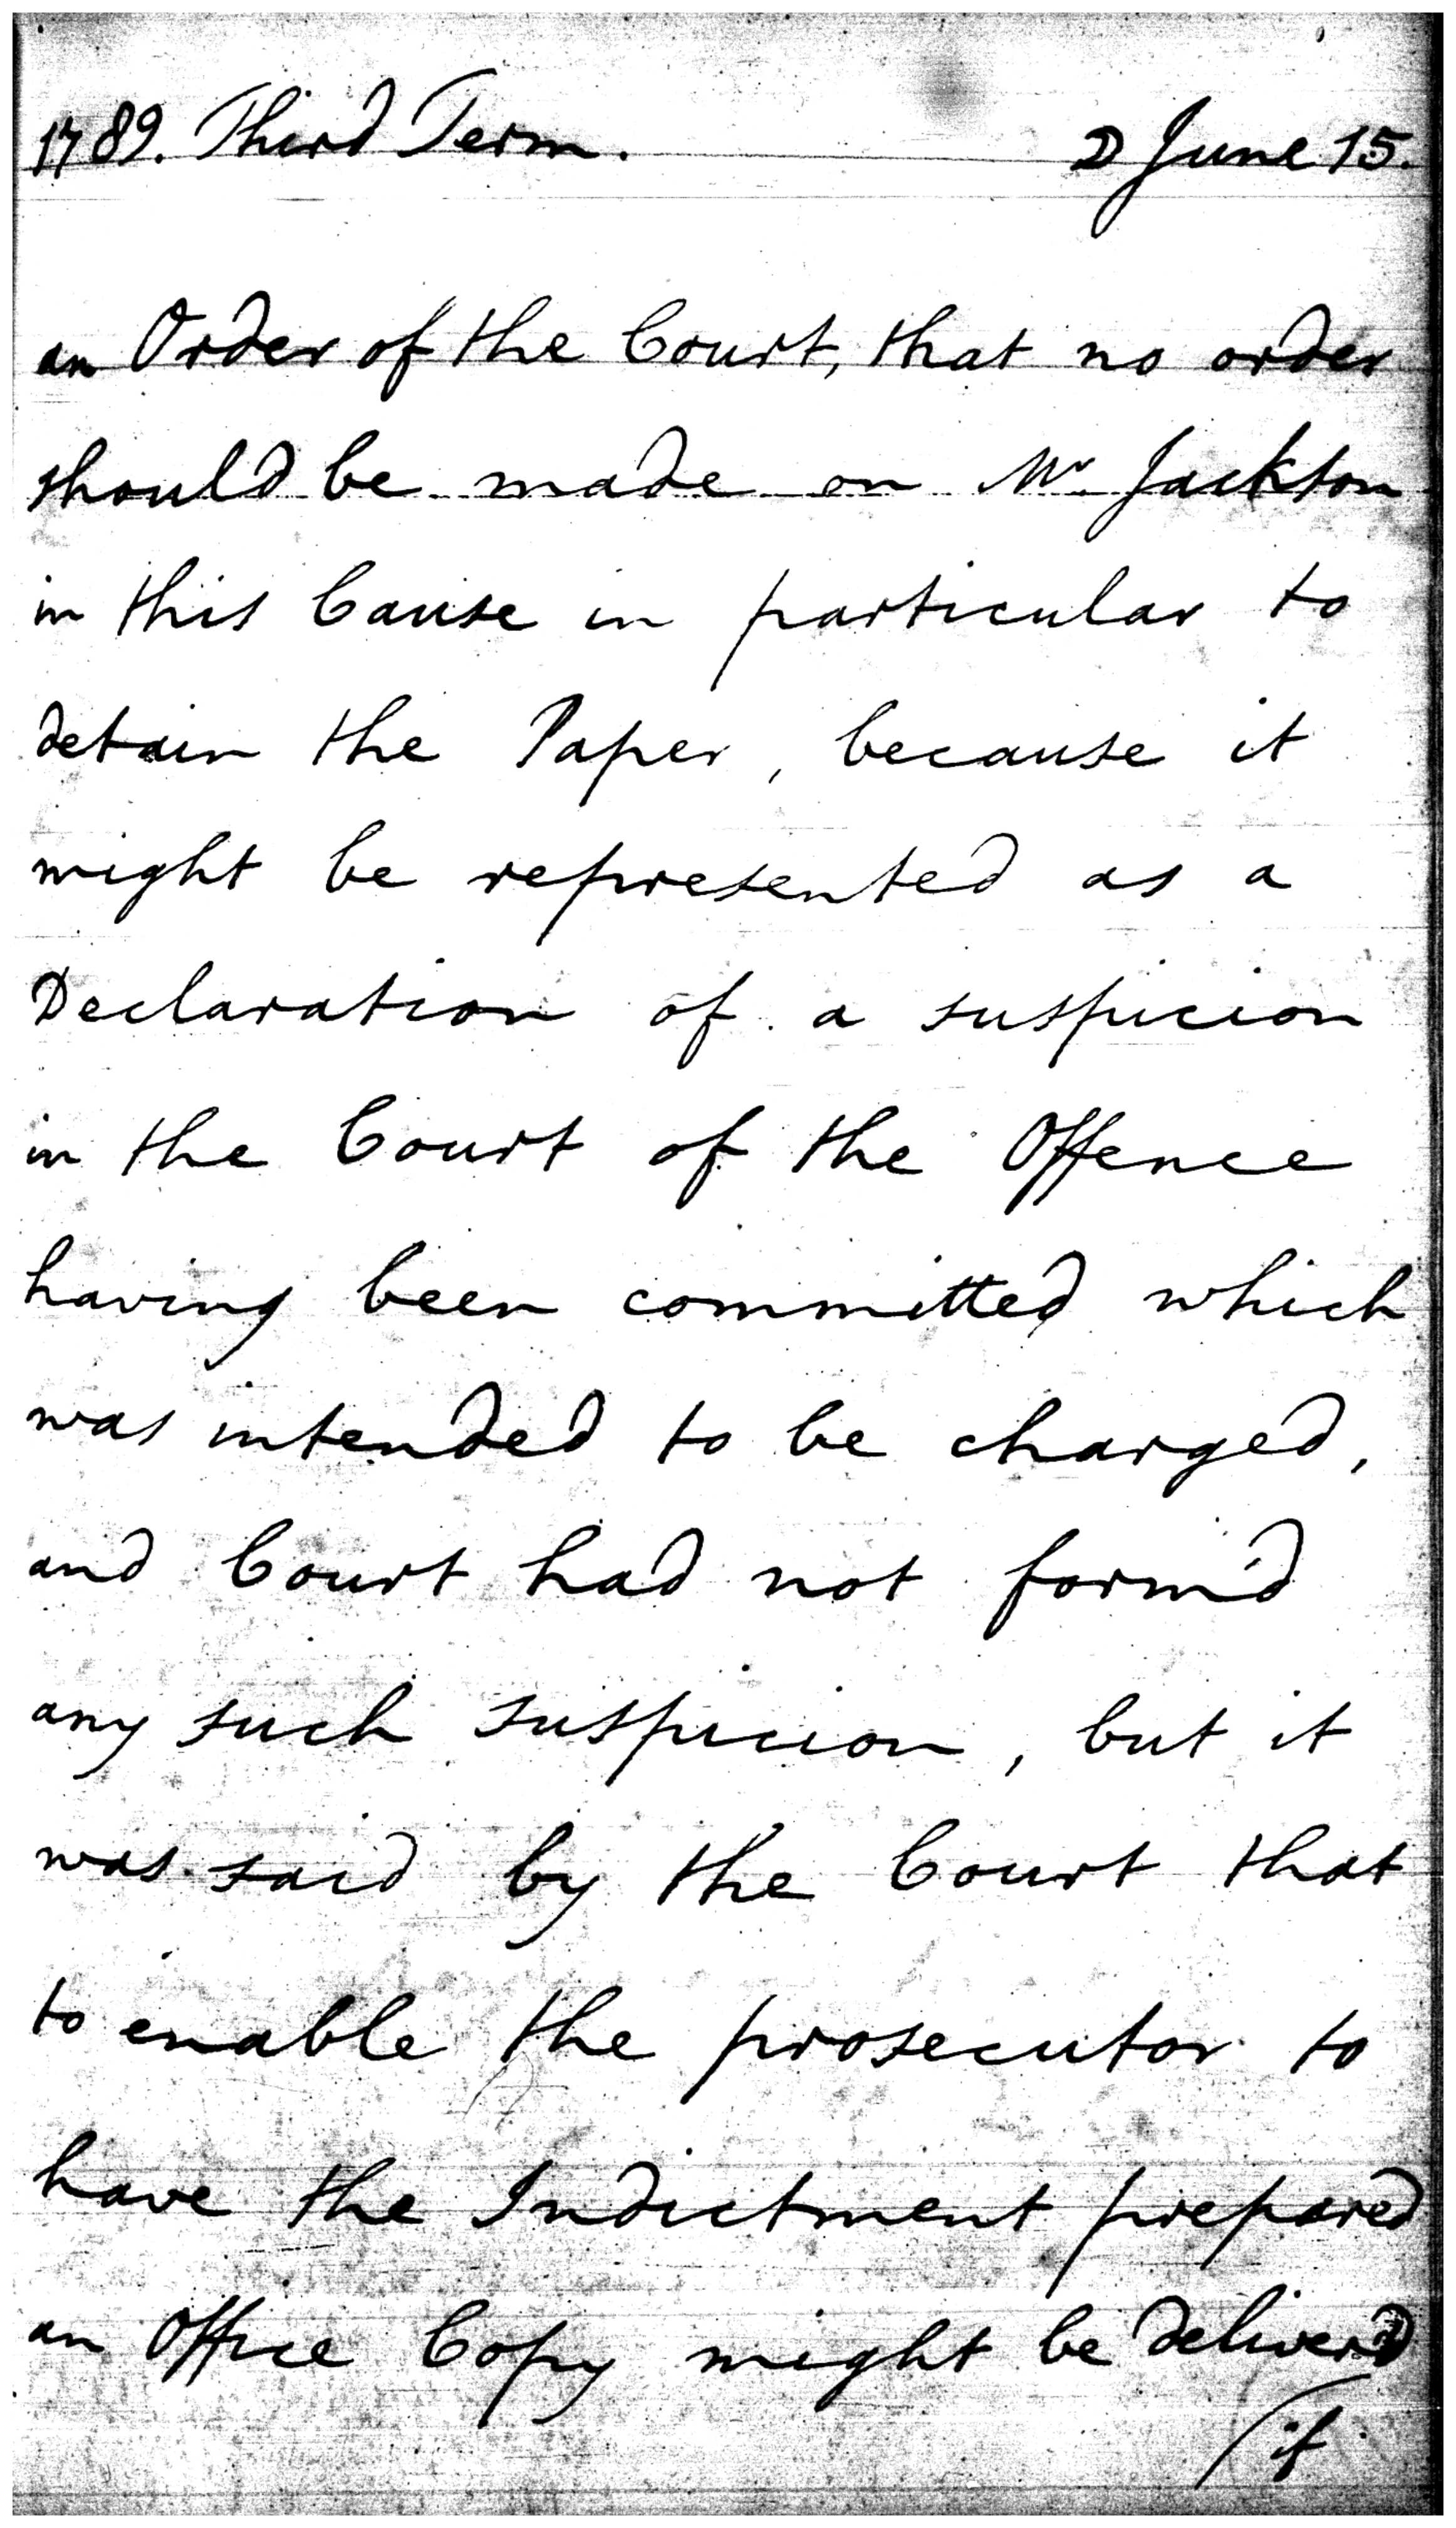 1789. Third Term. D June 15.
an Order of the Court, that no order
should be made on Mr Jackson
in this Cause in particular to
detain the Paper, because it
might be represented as a
Declaration of a suspicion
in the Court of the Offence
having been committed which
was intended to be charged,
and Court had not form'd
any such suspicion, but it
was said by the Court that
to enable the prosecutor to
have the Indictment prepared
an Office Copy might be deliver'd
if